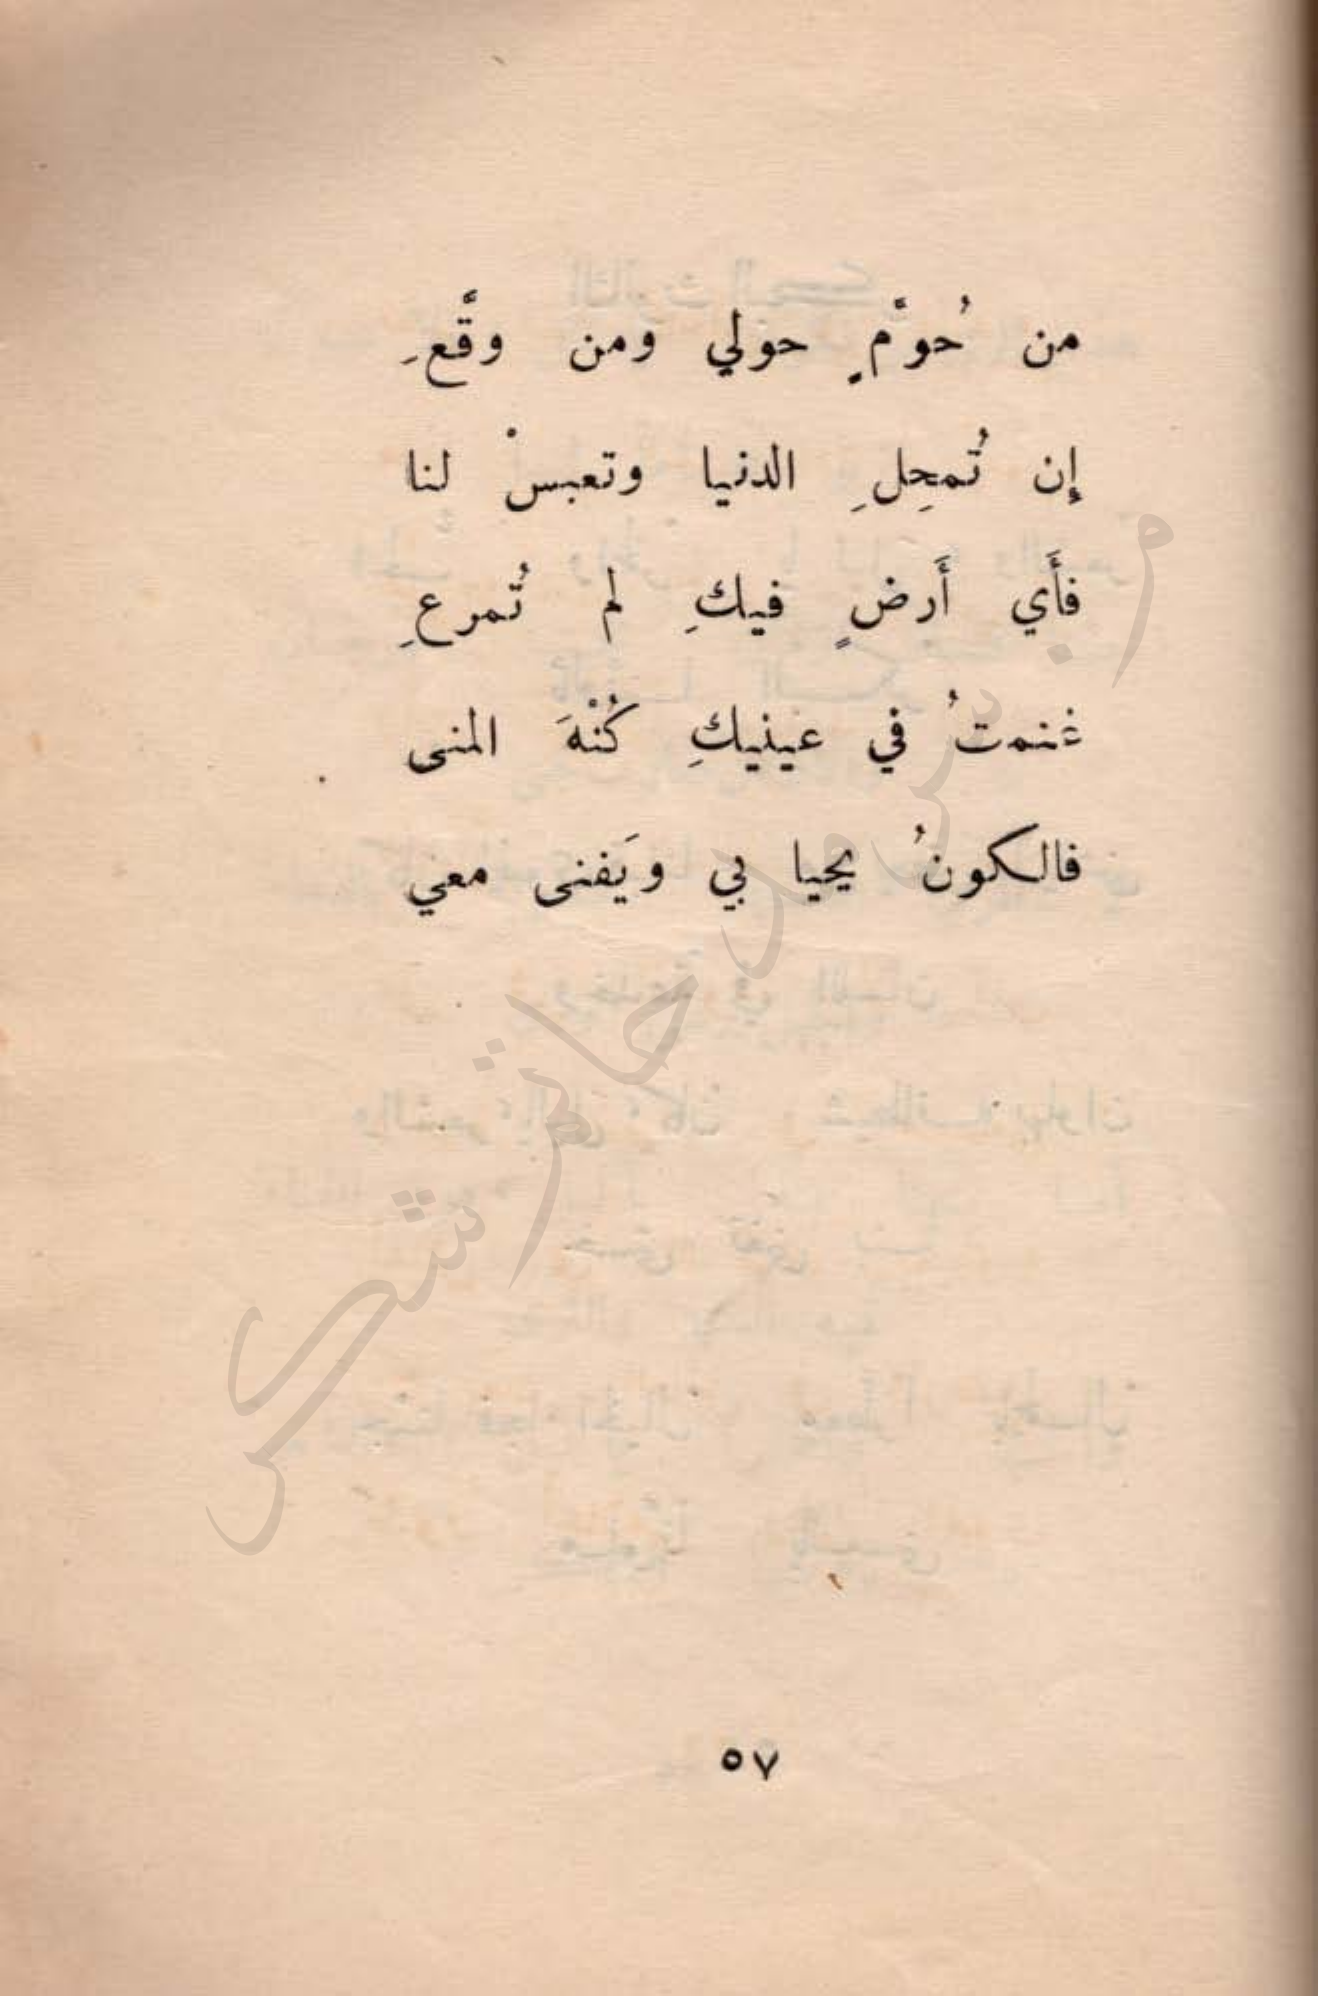 من حُوَّمٍ حولي ومن وقَّعِ
إن تُمحِلِ الدنيا وتعبسْ لنا
فأَي أَرضٍ فيكِ لم تُمرعِ
غنمتُ في عينيكِ كُنْهَ المنى
فالكونُ يحيا بي ويَفنى معي
٥٧